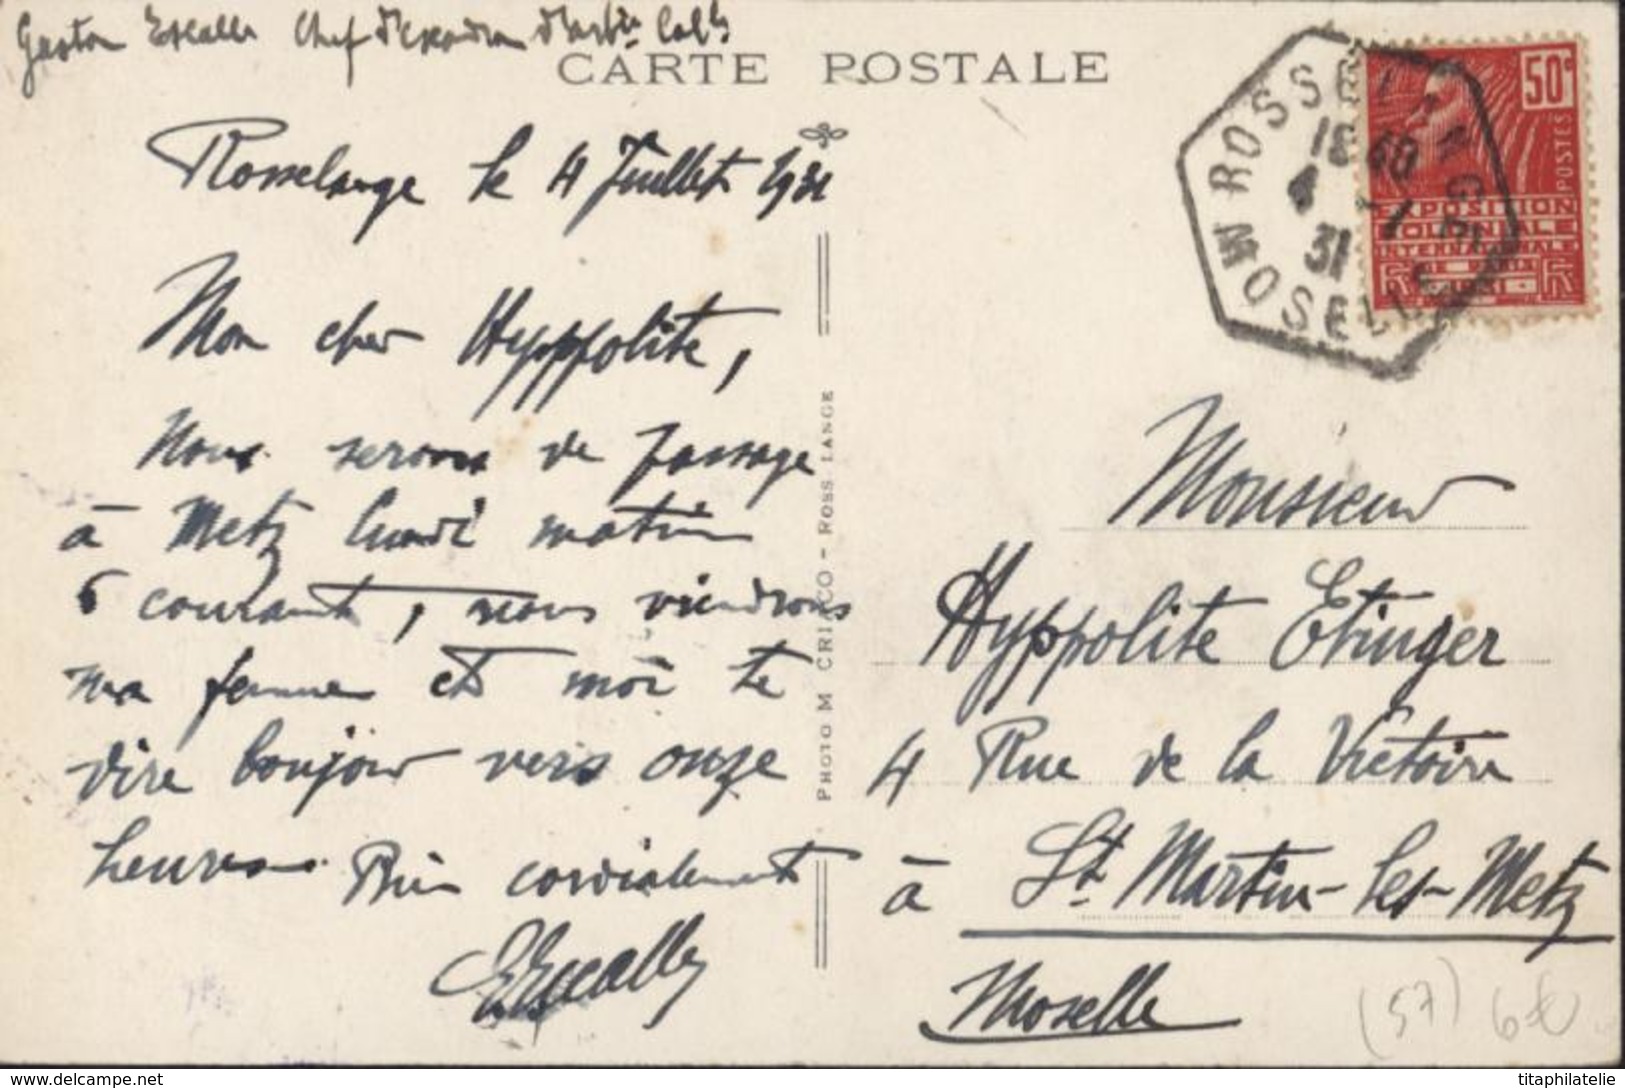 Gaston Escalle Chef d'Escadron d'Art.ie Col.le
CARTE POSTALE
Rosselange le 4 Juillet 1931
Mon cher Hyppolite,
Nous serons de passage
à Metz lundi matin
6 courant, nous viendrons
ma femme et moi te
dire bonjour vers onze
heures. Bien cordialement
GEscalle
PHOTO M CRIACO - ROSSLANGE
ROSSELANGE
18 40
4 -7
31
MOSELLE
50c
POSTES
EXPOSITION
COLONIALE
INTERNATIONALE
RF
Monsieur
Hyppolite Etinger
4 Rue de la Victoire
à St. Martin-les-Metz
Moselle
(57) 6€
delcampe.net
titaphilatelie